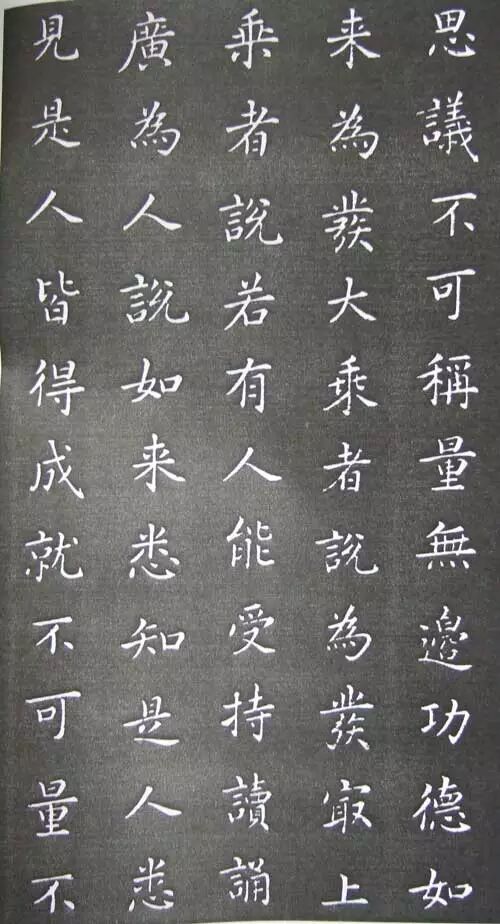 思議不可稱量無邊功德如
来為發大乘者說為發冣上
乘者說若有人能受持讀誦
廣為人說如来悉知是人悉
見是人皆得成就不可量不